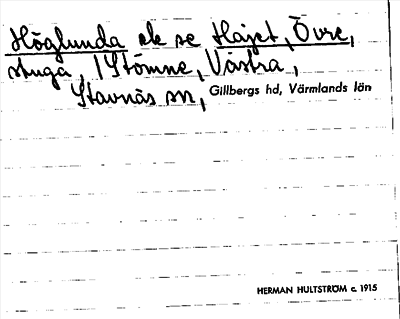 Höglunda ek se Höjet, Övre,
stuga, i Stömne, Västra,
Stavnäs sn, Gillbergs hd, Värmlands län
HERMAN HULTSTRÖM c. 1915